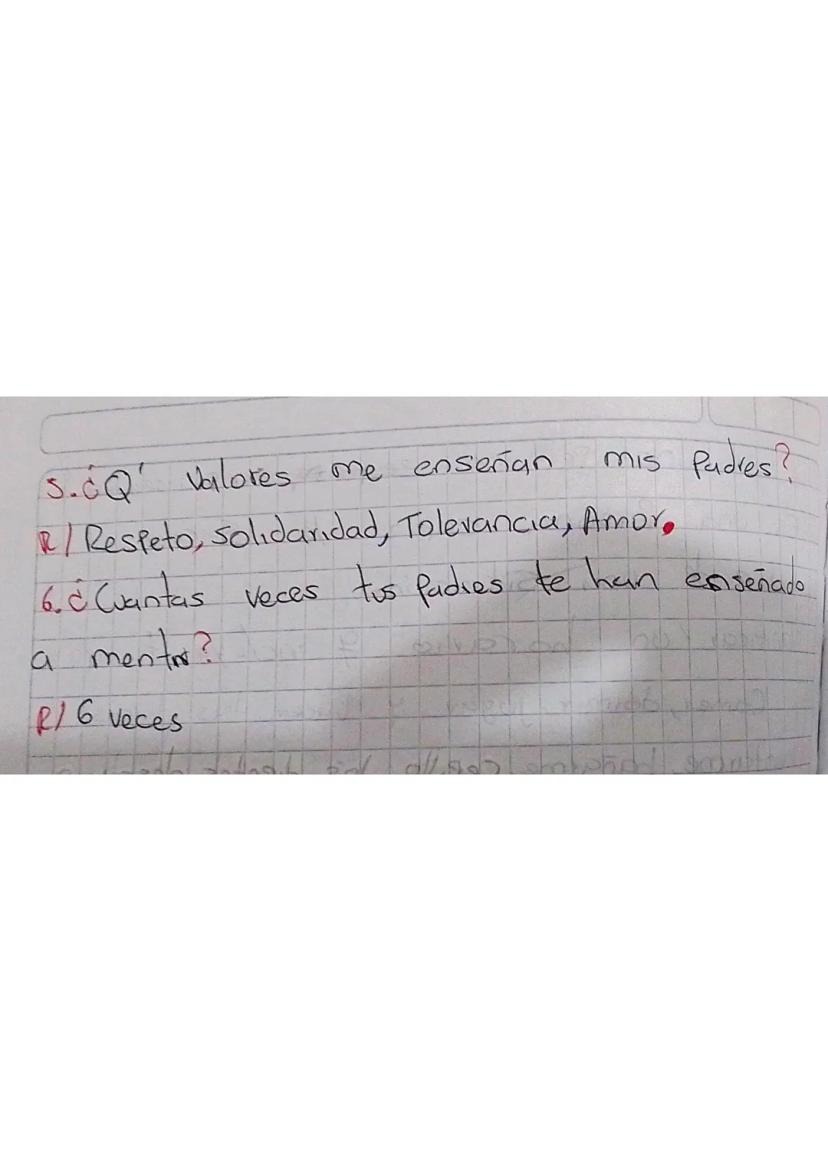 5. ¿Q' Valores me enseñan mis Padres?
R/ Respeto, Solidaridad, Tolerancia, Amor.
6. ¿Cuantas veces tus Padres te han enseñado
a mentir?
R/ 6 veces